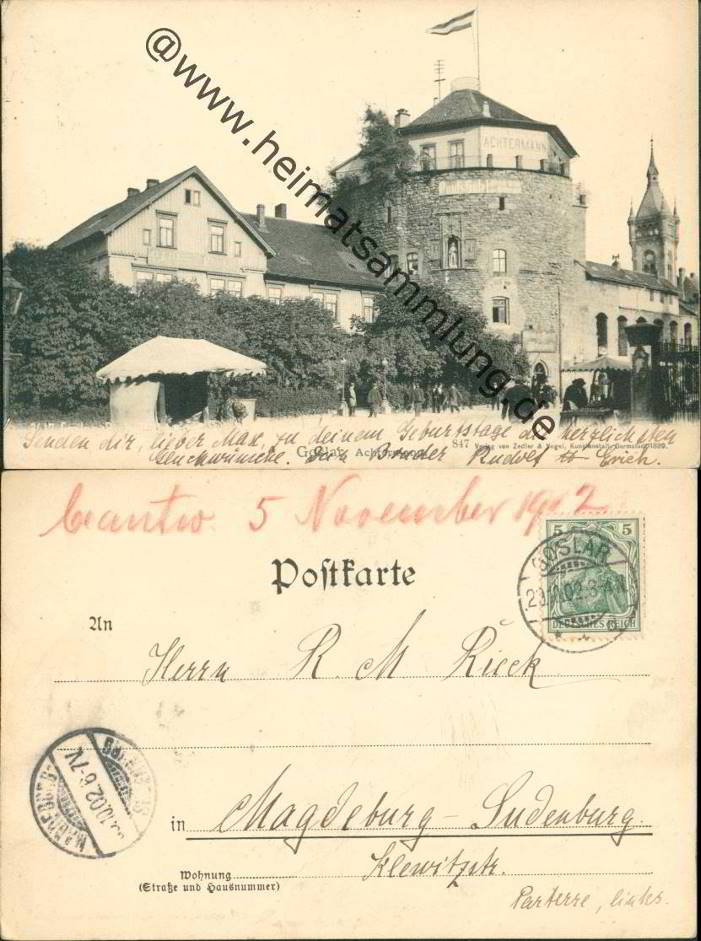 @www.heimatsammlung.de
ACHTERMANN
Senden dir, lieber Max, zu deinem Geburtstage die herzlichsten
Glückwünsche. Dein Bruder Rudolf & Erich.
Goslar. Achtermann.
847 Verlag von Zedler & Vogel, Kunstanstalt, Darmstadt. 1899.
5 November 1902
Postkarte
5 5
DEUTSCHES REICH
GOSLAR
An
Herrn R. M. Rieck
in Magdeburg-Sudenburg.
Klewitzstr.
Wohnung
(Straße und Hausnummer)
Parterre, links.
MAGDEBURG
.10.02 6-7V